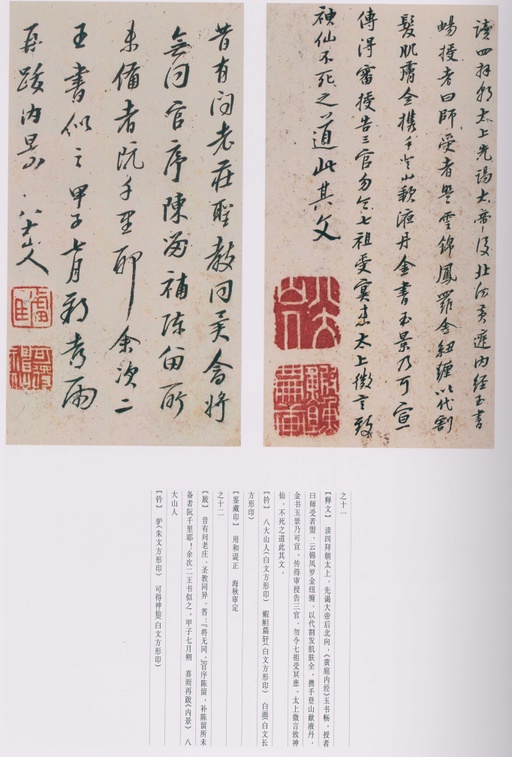 讀四拜朝太上先謁太帝後北向黄庭内經玉書
暢授者曰師受者盟雲錦鳳羅金紐纏以代割
髮肌膚全攜手登山歃液丹金書玉景乃可宣
傳得審授告三官勿令七祖受冥患太上微言致
神仙不死之道此其文
八大山人
昔有问老莊聖教同異答將
無同官序陳留補陈留所
未備者阮千里耶余次二
王書似之甲子七月朔喜雨
再跋内景八大山人
之十一
【释文】 读四拜朝太上，先谒太帝后北向，《黄庭内经》玉书畅，授者
曰师受者盟，云锦凤罗金纽缠，以代割发肌肤全，携手登山歃液丹，
金书玉景乃可宣，传得审授告三官，勿令七祖受冥患，太上微言致神
仙，不死之道此其文。
【钤】 八大山人(白文方形印) 篇轩(白文方形印) 白画(白文长
方形印)
【鉴藏印】 用和 正 海秋审定
之十二
【跋】 昔有问老庄、圣教同异，答：“将无同。”官序陈留，补陈留所未
备者阮千里耶！余次二王书似之，甲子七月朔 喜雨再跋《内景》 八
大山人
【钤】 驴(朱文方形印) 可得神仙(白文方形印)